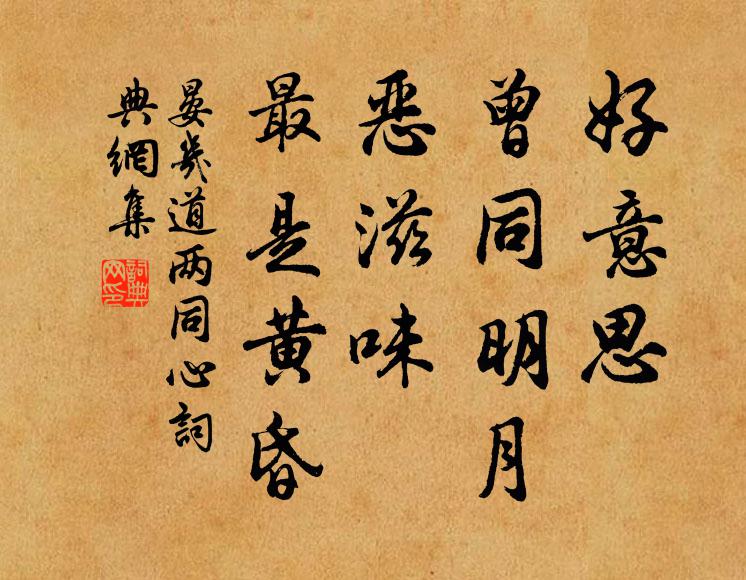 好意思
曾同明月
恶滋味
最是黄昏
晏幾道两同心詞
典網集
詞典
网印